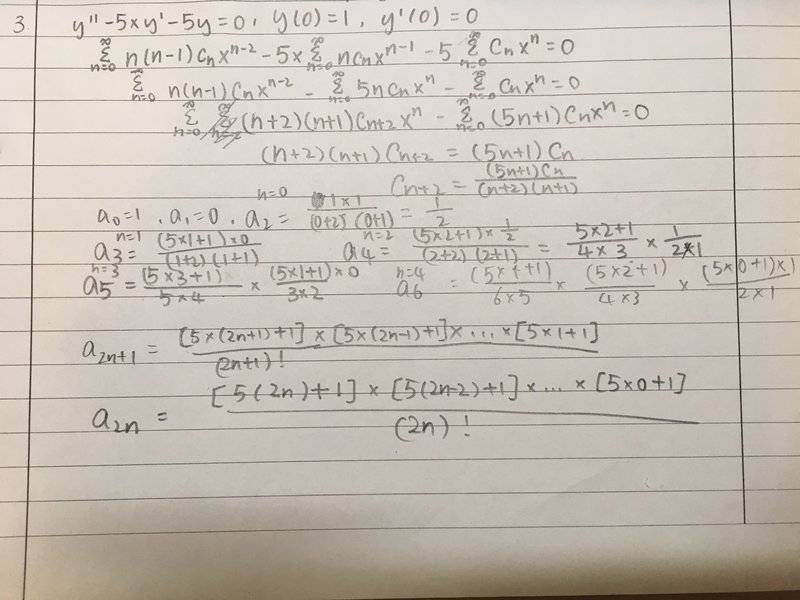 3 y'' - 5xy' - 5y = 0, y(0) = 1, y'(0) = 0
∞Σn=0 n(n-1)Cnx^(n-2) - 5x ∞Σn=0 nCnx^(n-1) - 5 ∞Σn=0 Cnx^n = 0
∞Σn=0 n(n-1)Cnx^(n-2) - ∞Σn=0 5nCnx^n - ∞Σn=0 Cnx^n = 0
∞Σn=0 (n+2)(n+1)Cn+2x^n - ∞Σn=0 (5n+1)Cnx^n = 0
(n+2)(n+1)Cn+2 = (5n+1)Cn
Cn+2 = (5n+1)Cn / (n+2)(n+1)
a0=1, a1=0, n=0 a2 = 1×1 / (0+2)(0+1) = 1/2
n=1 a3 = (5×1+1)×0 / (1+2)(1+1) n=2 a4 = (5×2+1)×1/2 / (2+2)(2+1) = 5×2+1 / 4×3 × 1 / 2×1
n=3 a5 = (5×3+1) / 5×4 × (5×1+1)×0 / 3×2 n=4 a6 = (5×4+1) / 6×5 × (5×2+1) / 4×3 × (5×0+1)×1 / 2×1
a2n+1 = [5×(2n+1)+1]×[5×(2n-1)+1]×...×[5×1+1] / (2n+1)!
a2n = [5(2n)+1]×[5(2n-2)+1]×...×[5×0+1] / (2n)!